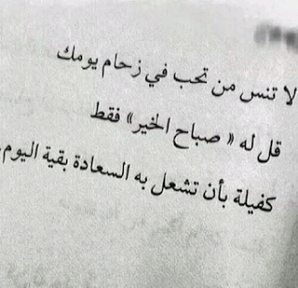 لا تنس من تحب في زحام يومك
قل له « صباح الخير» فقط
كفيلة بأن تشعل به السعادة بقية اليوم.